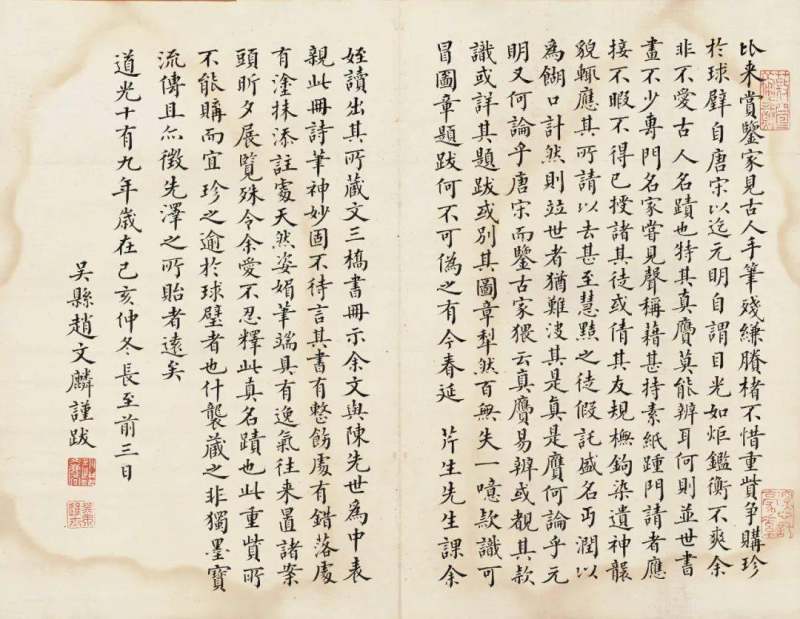 比来賞鑒家見古人手筆殘縑賸楮不惜重貲争購珍
於球璧自唐宋以迄元明自謂目光如炬鑑衡不爽余
非不愛古人名蹟也特其真贗莫能辨耳何則並世書
畫不少專門名家嘗見聲稱藉甚持素紙踵門請者應
接不暇不得已授諸其徒或倩其友規橅鉤染遺神襲
貌輒應其所請以去甚至慧黠之徒假託盛名丐潤以
為餬口計然則竝世者猶難决其是真是贗何論乎元
明又何論乎唐宋而鑒古家猥云真贗易辨或覩其款
識或詳其題跋或別其圖章犁然百無失一噫款識可
冒圖章題跋何不可偽之有今春延 芹生先生課余
姪讀出其所藏文三橋書冊示余文與陳先世為中表
親此冊詩筆神妙固不待言其書有整飭處有錯落處
有塗抹添註處天然姿媚筆端具有逸氣往来置諸案
頭昕夕展覽殊令余愛不忍釋此真名蹟也此重貲所
不能購而宜珍之逾於球璧者也什襲蔵之非獨墨寶
流傳且亦徵先澤之所貽者遠矣
道光十有九年歲在己亥仲冬長至前三日
吳縣趙文麟謹跋